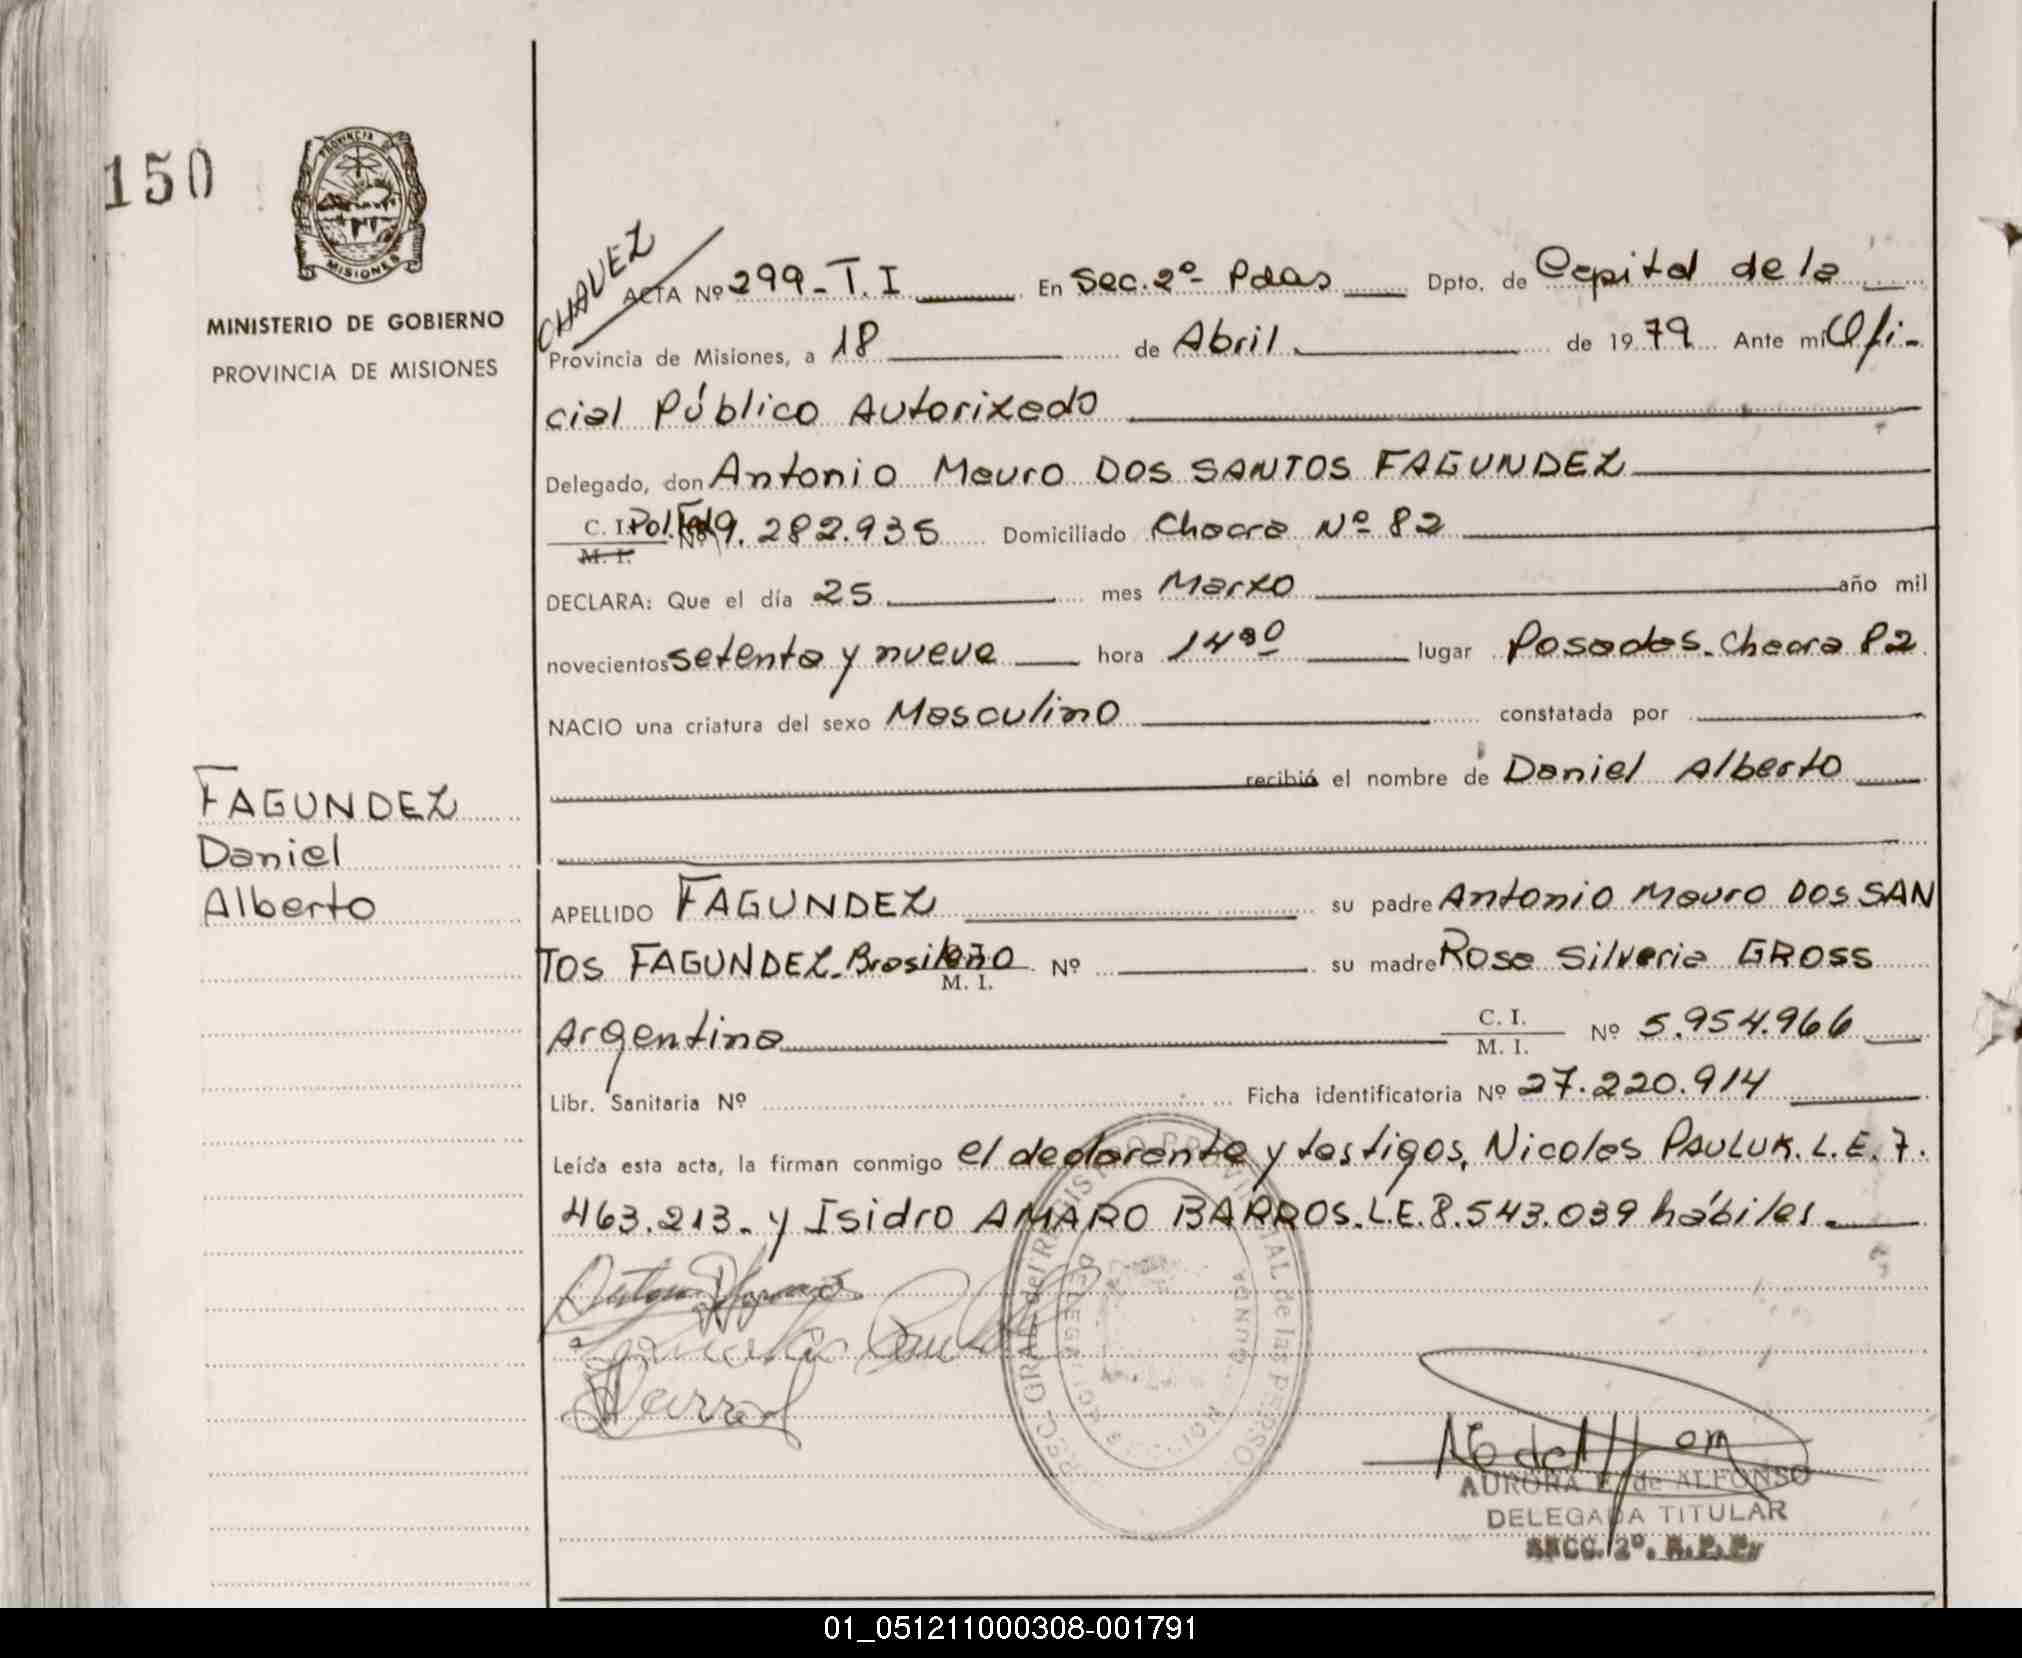 150
PROVINCIA DE
MISIONES
MINISTERIO DE GOBIERNO
PROVINCIA DE MISIONES
FAGUNDEZ
Daniel
Alberto
CHAVEZ
ACTA Nº 299-T.I En Sec. 2º- Pdas Dpto. de Capital de la
Provincia de Misiones, a 18 de Abril de 1979 Ante mi Ofi-
cial Público Autorizado
Delegado, don Antonio Mauro DOS SANTOS FAGUNDEZ
C. I. Pol. Fed Nº 9.282.935 Domiciliado Chacra Nº 82
M. I.
DECLARA: Que el día 25 mes Marzo año mil
novecientos setenta y nueve hora 14 30 lugar Posadas-Chacra 82
NACIO una criatura del sexo Masculino constatada por
recibió el nombre de Daniel Alberto
APELLIDO FAGUNDEZ su padre Antonio Mauro DOS SAN
TOS FAGUNDEZ-Brasileño M. I. Nº su madre Rosa Silveria GROSS
Argentina C. I. M. I. Nº 5.954.966
Libr. Sanitaria Nº Ficha identificatoria Nº 27.220.914
Leída esta acta, la firman conmigo el declarante y testigos, Nicolas PAULUK. L.E. 7.
463.213- y Isidro AMARO BARROS. L.E. 8.543.039 hábiles.
GRAL del REGISTRO PROVINCIAL de las PERSO
AURORA de ALFONSO
DELEGADA TITULAR
SECC. 2º. R.P.P.
01_051211000308-001791